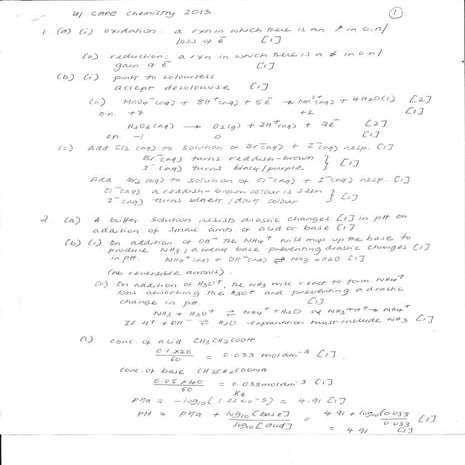 U1 CAPE Chemistry 2013
①
1 (a) (i) oxidation: a rxn in which there is an ↑ in o.n/
loss of e⁻ [1]
(ii) reduction: a rxn in which there is a ↓ in o.n/
gain of e⁻ [1]
(b) (i) pink to colourless
accept decolourise [1]
(ii) MnO₄⁻(aq) + 8H⁺(aq) + 5e⁻ → Mn²⁺(aq) + 4H₂O(l) [2]
o.n. +7 +2 [1]
H₂O₂(aq) → O₂(g) + 2H⁺(aq) + 2e⁻ [2]
o.n. -1 0 [1]
(c) Add Cl₂(aq) to solution of Br⁻(aq) + I⁻(aq) resp. [1]
Br⁻(aq) turns reddish-brown
I⁻(aq) turns black/purple } [1]
Add Br₂(aq) to solution of Cl⁻(aq) + I⁻(aq) resp. [1]
Cl⁻(aq) a reddish-brown colour is seen
I⁻(aq) turns black/dark colour } [1]
2 (a) A buffer solution resists drastic changes [1] in pH on
addition of small amts of acid or base [1]
(b) (i) On addition of OH⁻ the NH₄⁺ will mop up the base to
produce NH₃, a weak base preventing drastic changes [1]
in pH. NH₄⁺(aq) + OH⁻(aq) ⇌ NH₃ + H₂O [1]
(no reversible arrows).
On addition of H₃O⁺, the NH₃ will react to form NH₄⁺
ions absorbing the H₃O⁺ and preventing a drastic
change in pH. [1]
NH₃ + H₃O⁺ ⇌ NH₄⁺ + H₂O or NH₃ + H⁺ → NH₄⁺
If H⁺ + OH⁻ ⇌ H₂O explanation must include NH₃ [1]
conc. of acid CH₃CH₂COOH
0.1 x 20
60 = 0.033 mol dm⁻³ [1]
conc. of base CH₃CH₂COONa
0.05 x 40
60 = 0.033 mol dm⁻³ [1]
Ka
pKa = -log₁₀ ( x 10⁻⁵) = 4.91 [1]
pH = pKa + log₁₀ [base]
log₁₀ [acid] = 4.91 + log₁₀ 0.033
0.033 [1]
= 4.91 [1]